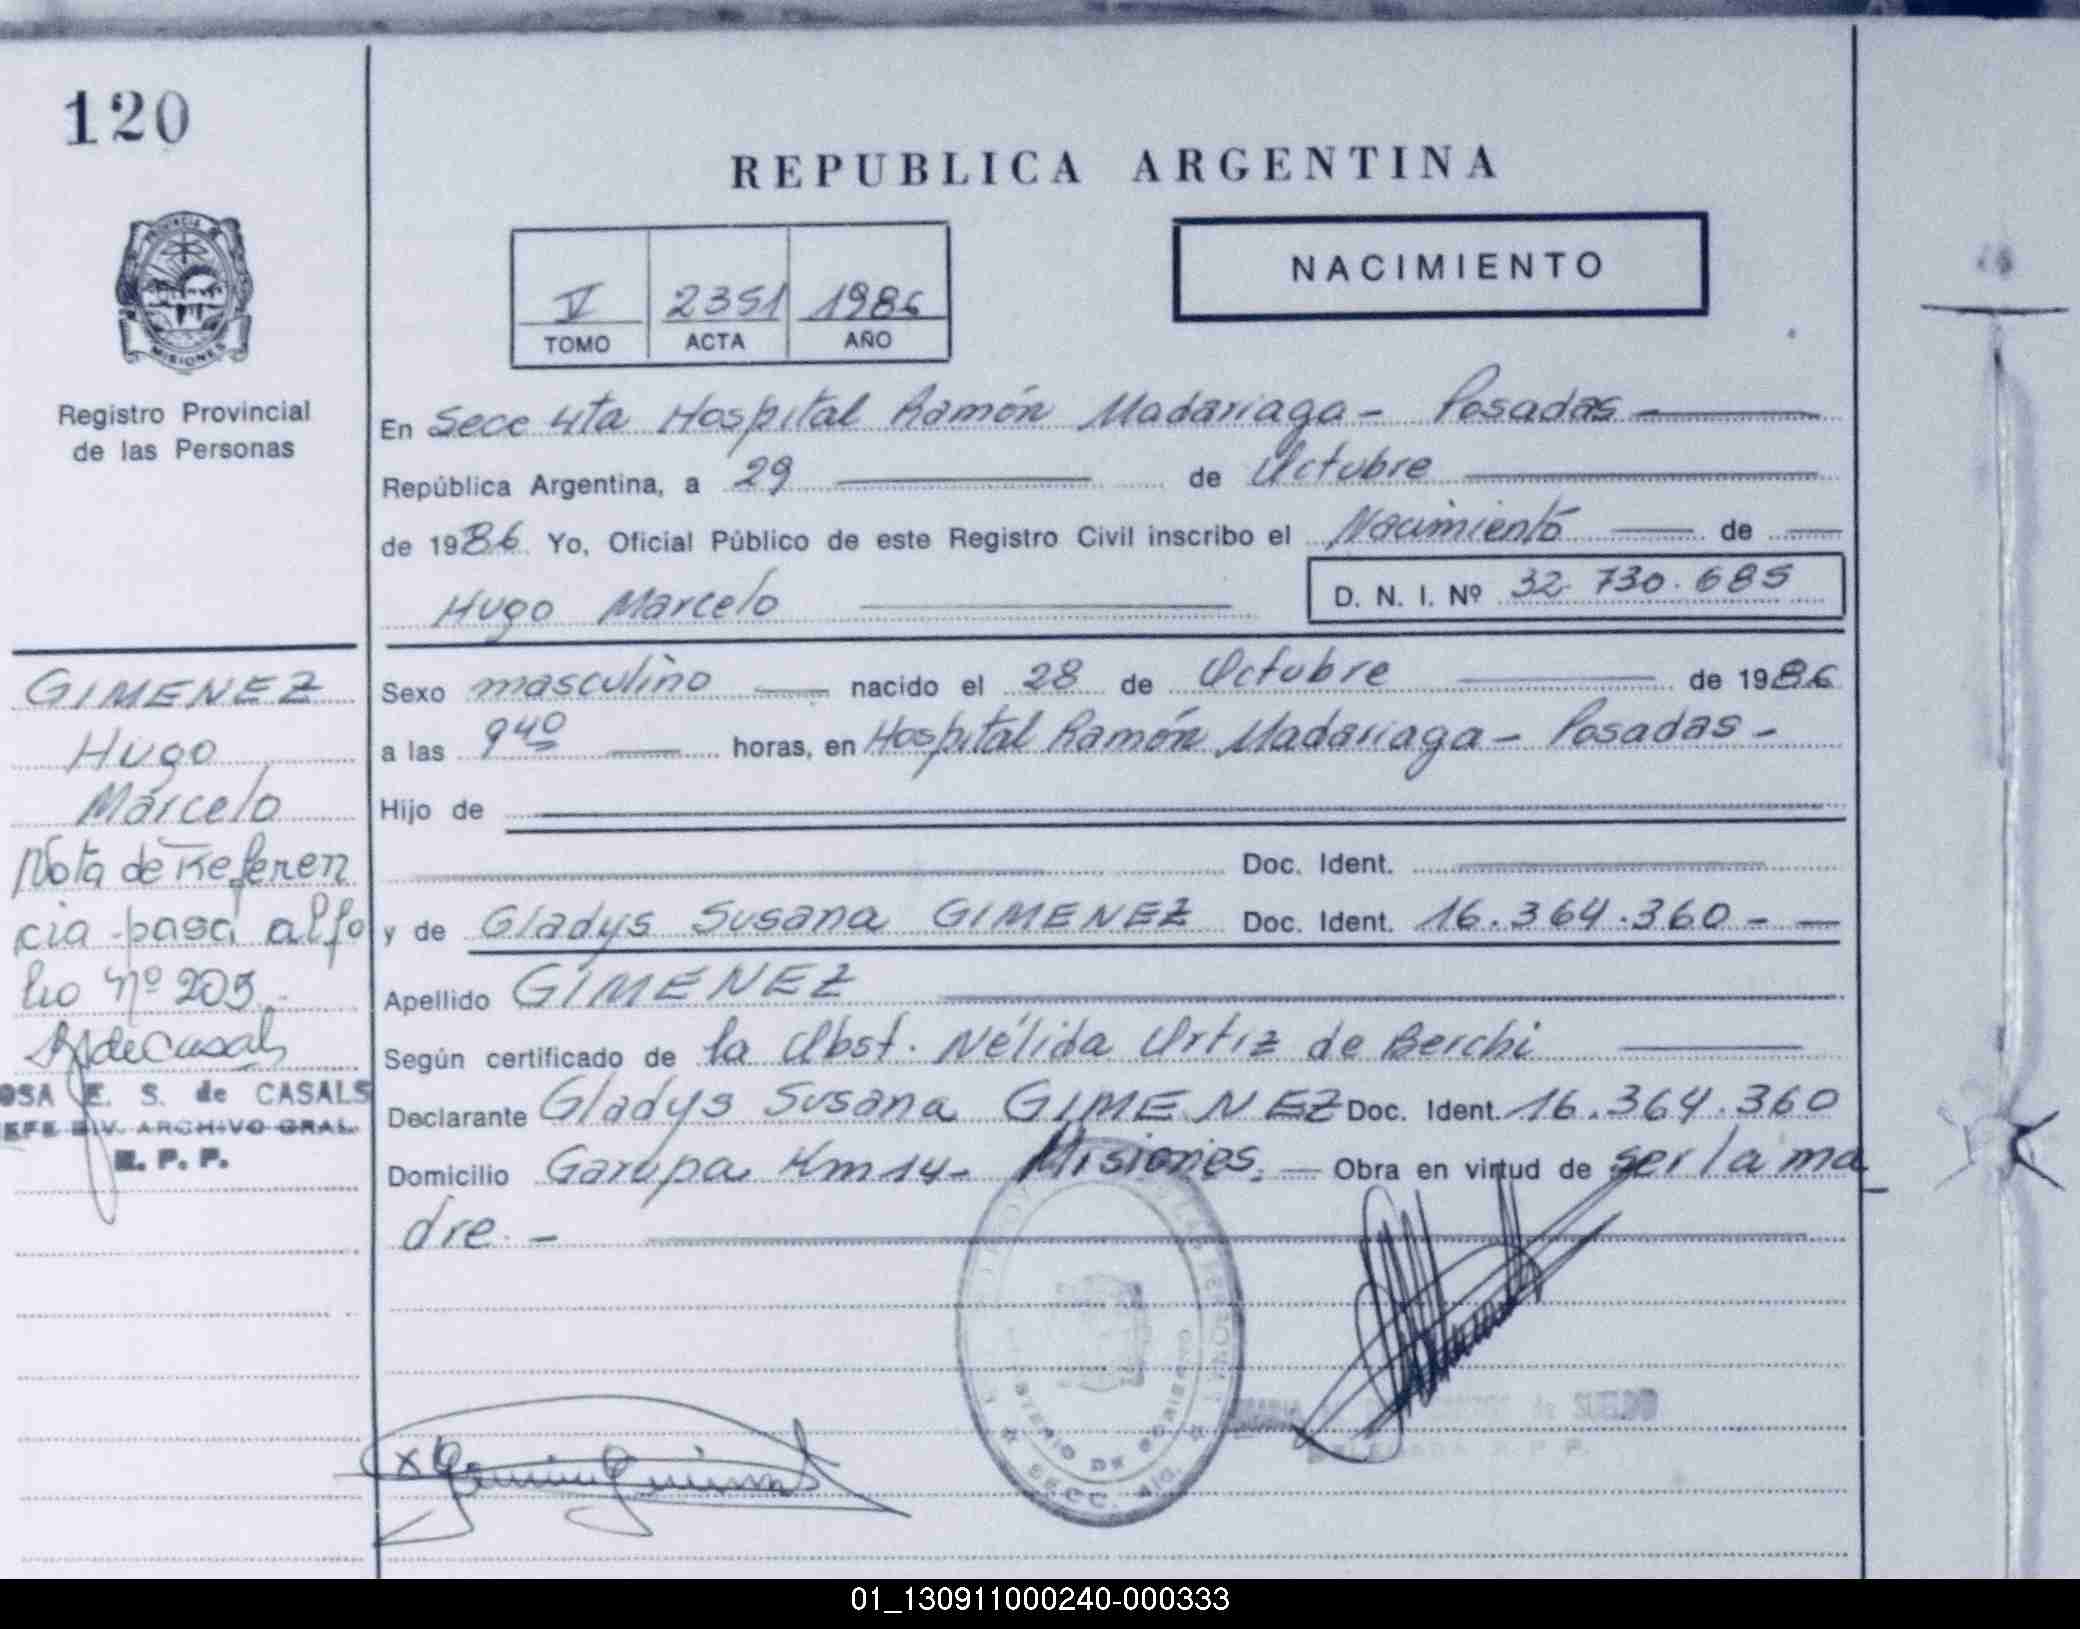 120
REPUBLICA ARGENTINA
PROVINCIA DE
MISIONES
Registro Provincial
de las Personas
V 2351 1986
TOMO ACTA AÑO
NACIMIENTO
En Secc 4ta Hospital Ramón Madariaga - Posadas -
República Argentina, a 29 de Octubre
de 1986 Yo, Oficial Público de este Registro Civil inscribo el Nacimiento de
Hugo Marcelo D. N. I. Nº 32.730.685
Sexo masculino nacido el 28 de Octubre de 1986
a las 9 40 horas, en Hospital Ramón Madariaga - Posadas -
Hijo de
Doc. Ident.
y de Gladys Susana GIMENEZ Doc. Ident. 16.364.360 - -
Apellido GIMENEZ
Según certificado de la Obst. Nélida Ortiz de Berchi
Declarante Gladys Susana GIMENEZ Doc. Ident. 16.364.360
Domicilio Garupa Km 14 - Misiones. - Obra en virtud de ser la ma
dre. -
GIMENEZ
Hugo
Marcelo
Nota de Referen
cia pasa al fo
lio Nº 203
OSA E. S. de CASALS
EFE DIV. ARCHIVO GRAL.
R. P. P.
DE GOBIERNO
SECC. 4ta.
01_130911000240-000333